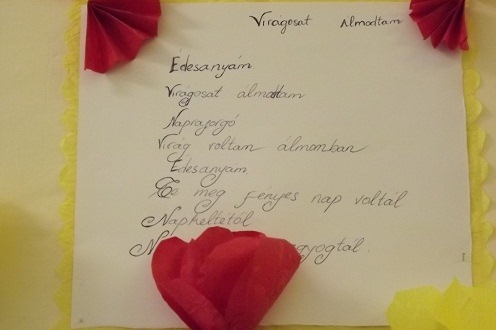 Virágosat Álmodtam
Édesanyám
Virágosat álmodtam
Napraforgó
Virág voltam álmonban
Édesanyám
Te meg fényes nap voltál
Napkeltétől